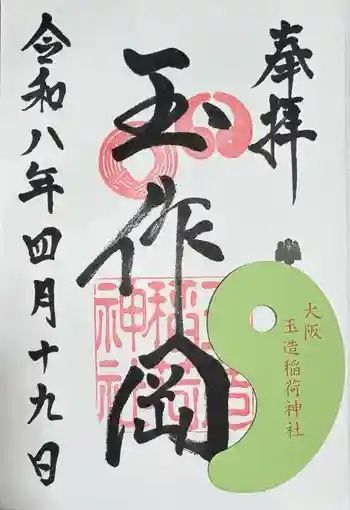 奉拝
玉作岡
玉造
稲荷
神社
大阪
玉造稲荷神社
令和八年四月十九日